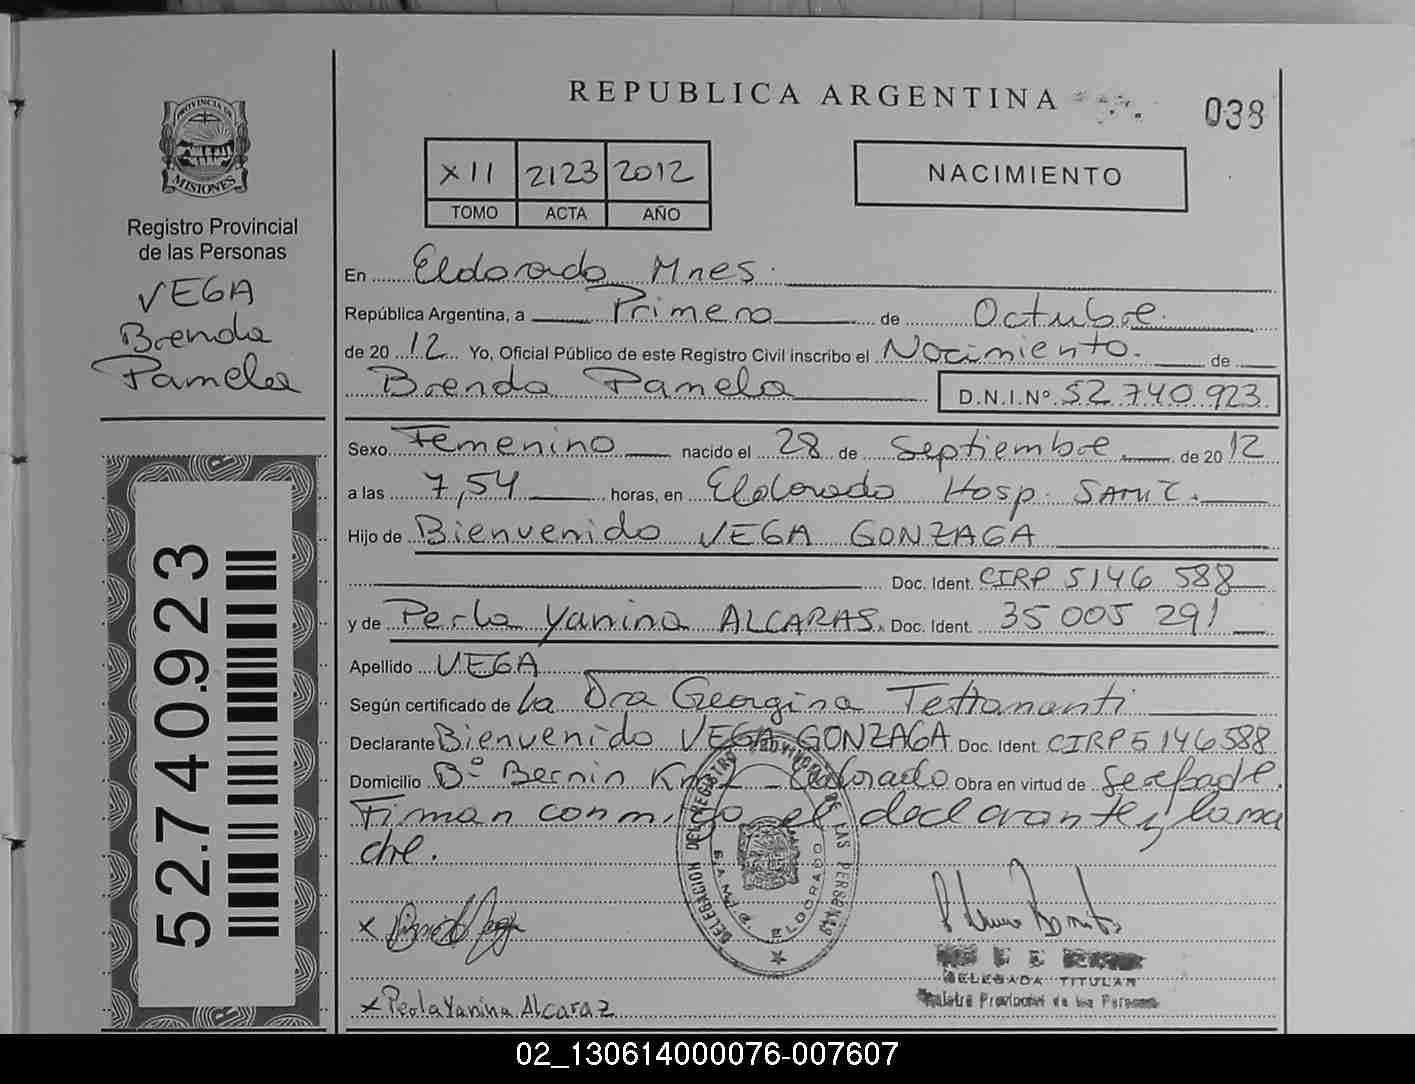 REPUBLICA ARGENTINA
038
PROVINCIA DE
MISIONES
Registro Provincial
de las Personas
VEGA
Brenda
Pamela
52.740.923
XII 2123 2012
TOMO ACTA AÑO
NACIMIENTO
En Eldorado Mnes.
República Argentina, a Primero de Octubre
de 20 12 Yo, Oficial Público de este Registro Civil inscribo el Nacimiento. de
Brenda Pamela D.N.I.Nº 52 740 923
Sexo Femenino nacido el 28 de Septiembre de 20 12
a las 7,54 horas, en Eldorado Hosp. SAMIC.
Hijo de Bienvenido VEGA GONZAGA
Doc. Ident. CIRP 5146 588
y de Perla Yanina ALCARAS. Doc. Ident. 35 005 291
Apellido VEGA
Según certificado de la Dra Georgina Tettamanti
Declarante Bienvenido VEGA GONZAGA Doc. Ident. CIRP 5146588
Domicilio Bº Bernin Km 2 - Eldorado Obra en virtud de
Firman conmigo el declarante y la ma
dre.
DELEGACION DEL REGISTRO PROVINCIAL DE LAS PERSONAS
ELDORADO
x
DELEGADA TITULAR
Registro Provincial de las Personas
x Perla Yanina Alcaraz
02_130614000076-007607